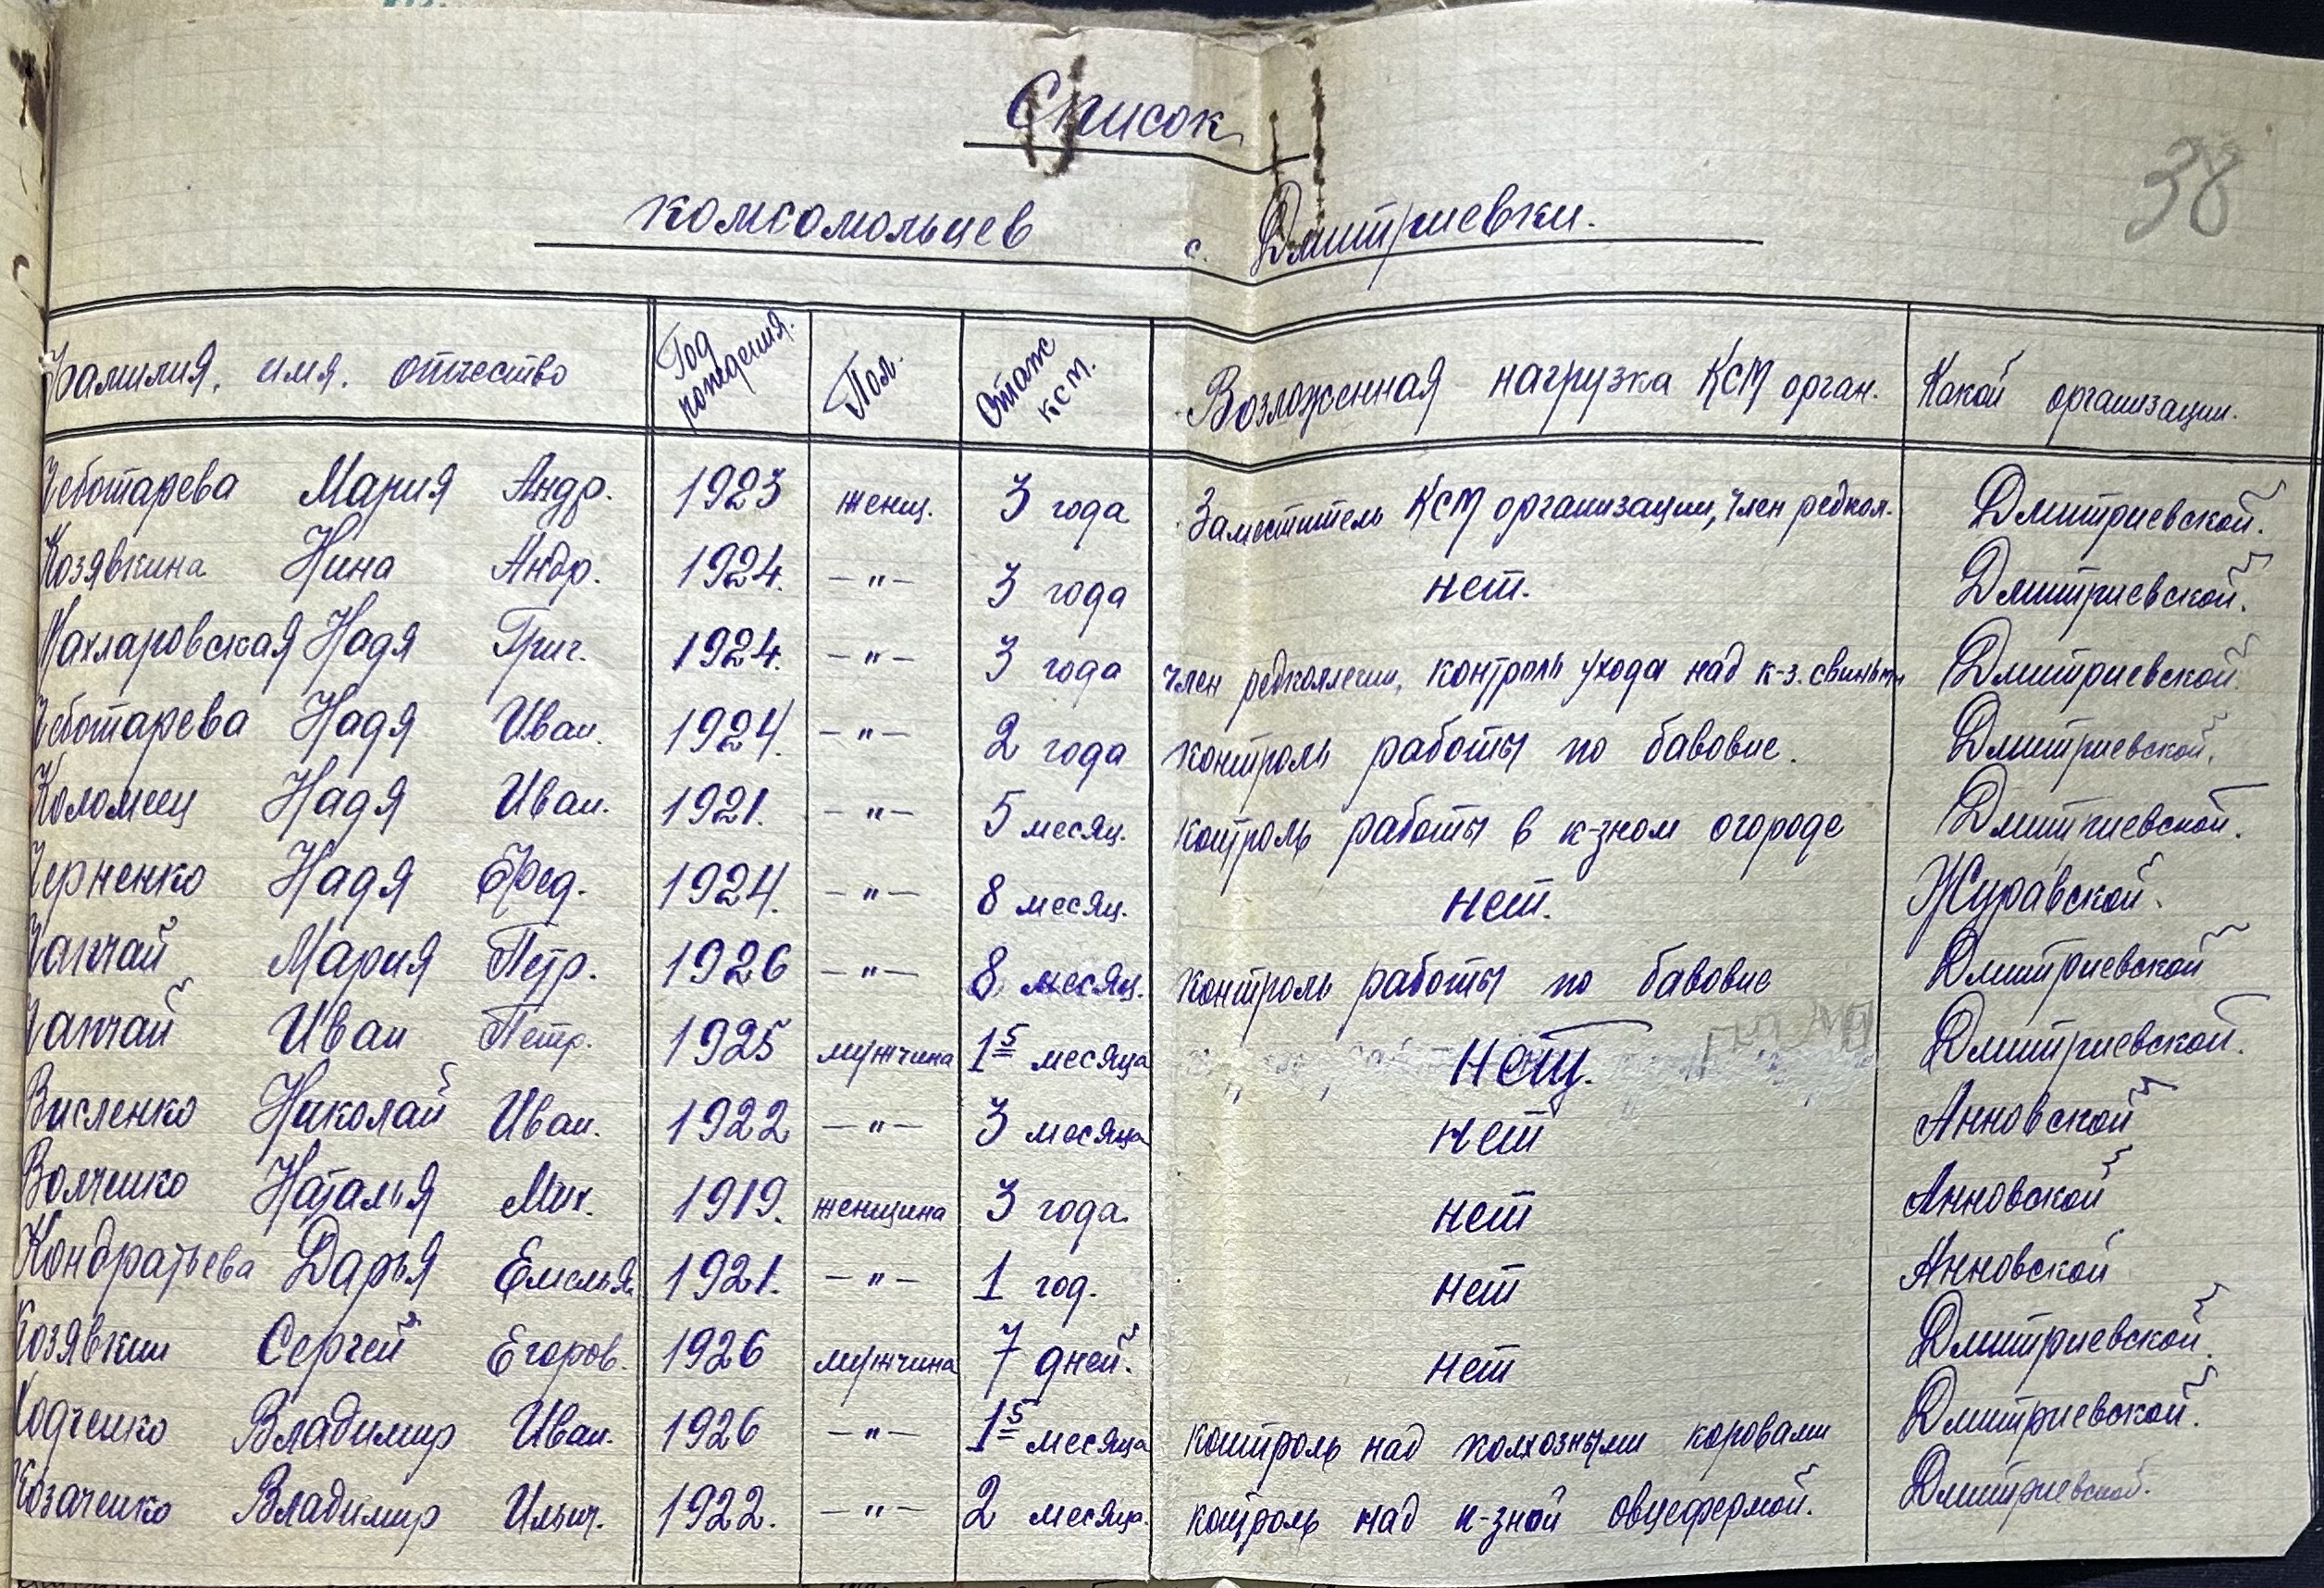 38
Список
комсомольцев с. Дмитриевки.
Фамилия, имя, отчество Год рождения. Пол. Стаж КСМ. Возложенная нагрузка КСМ орган. Какой организации.
Чеботарева Мария Андр. 1923 женщ. 3 года Заместитель КСМ организации, член редкол. Дмитриевской.
Козявкина Нина Андр. 1924. —"— 3 года нет. Дмитриевской.
Махларовская Надя Григ. 1924. —"— 3 года член редколлегии, контроль ухода над к-з. свиньми Дмитриевской.
Чеботарева Надя Иван. 1924. —"— 2 года контроль работы по бавовне. Дмитриевской.
Коломиец Надя Иван. 1921. —"— 5 месяц. контроль работы в к-зном огороде Дмитриевской.
Черненко Надя Фед. 1924. —"— 8 месяц. нет. Журавской.
Чапчай Мария Петр. 1926 —"— 8 месяц. контроль работы по бавовне Дмитриевской
Чапчай Иван Петр. 1925 мужчина 1 5 месяца нет. Дмитриевской.
Висленко Николай Иван. 1922 —"— 3 месяца нет Анновской
Волченко Наталья Мих. 1919. женщина 3 года. нет Анновской
Кондратьева Дарья Емельян. 1921. —"— 1 год. нет Анновской
Козявкин Сергей Егоров. 1926 мужчина 7 дней. нет Дмитриевской.
Ходченко Владимир Иван. 1926 —"— 1 5 месяца контроль над колхозными коровами Дмитриевской.
Козаченко Владимир Ильич. 1922. —"— 2 месяца. контроль над к-зной овцефермой. Дмитриевской.